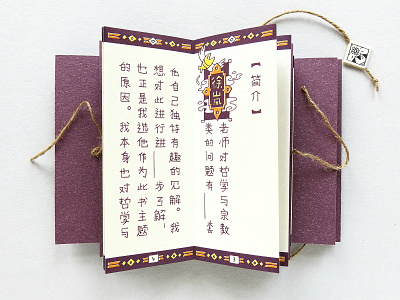 【简介】
徐岚
老师对哲学与宗教
类的问题有一套
他自己独特有趣的见解。我
想对此进行进一步了解,
也正是我选他作为此书主题
的原因。我本身也对哲学与